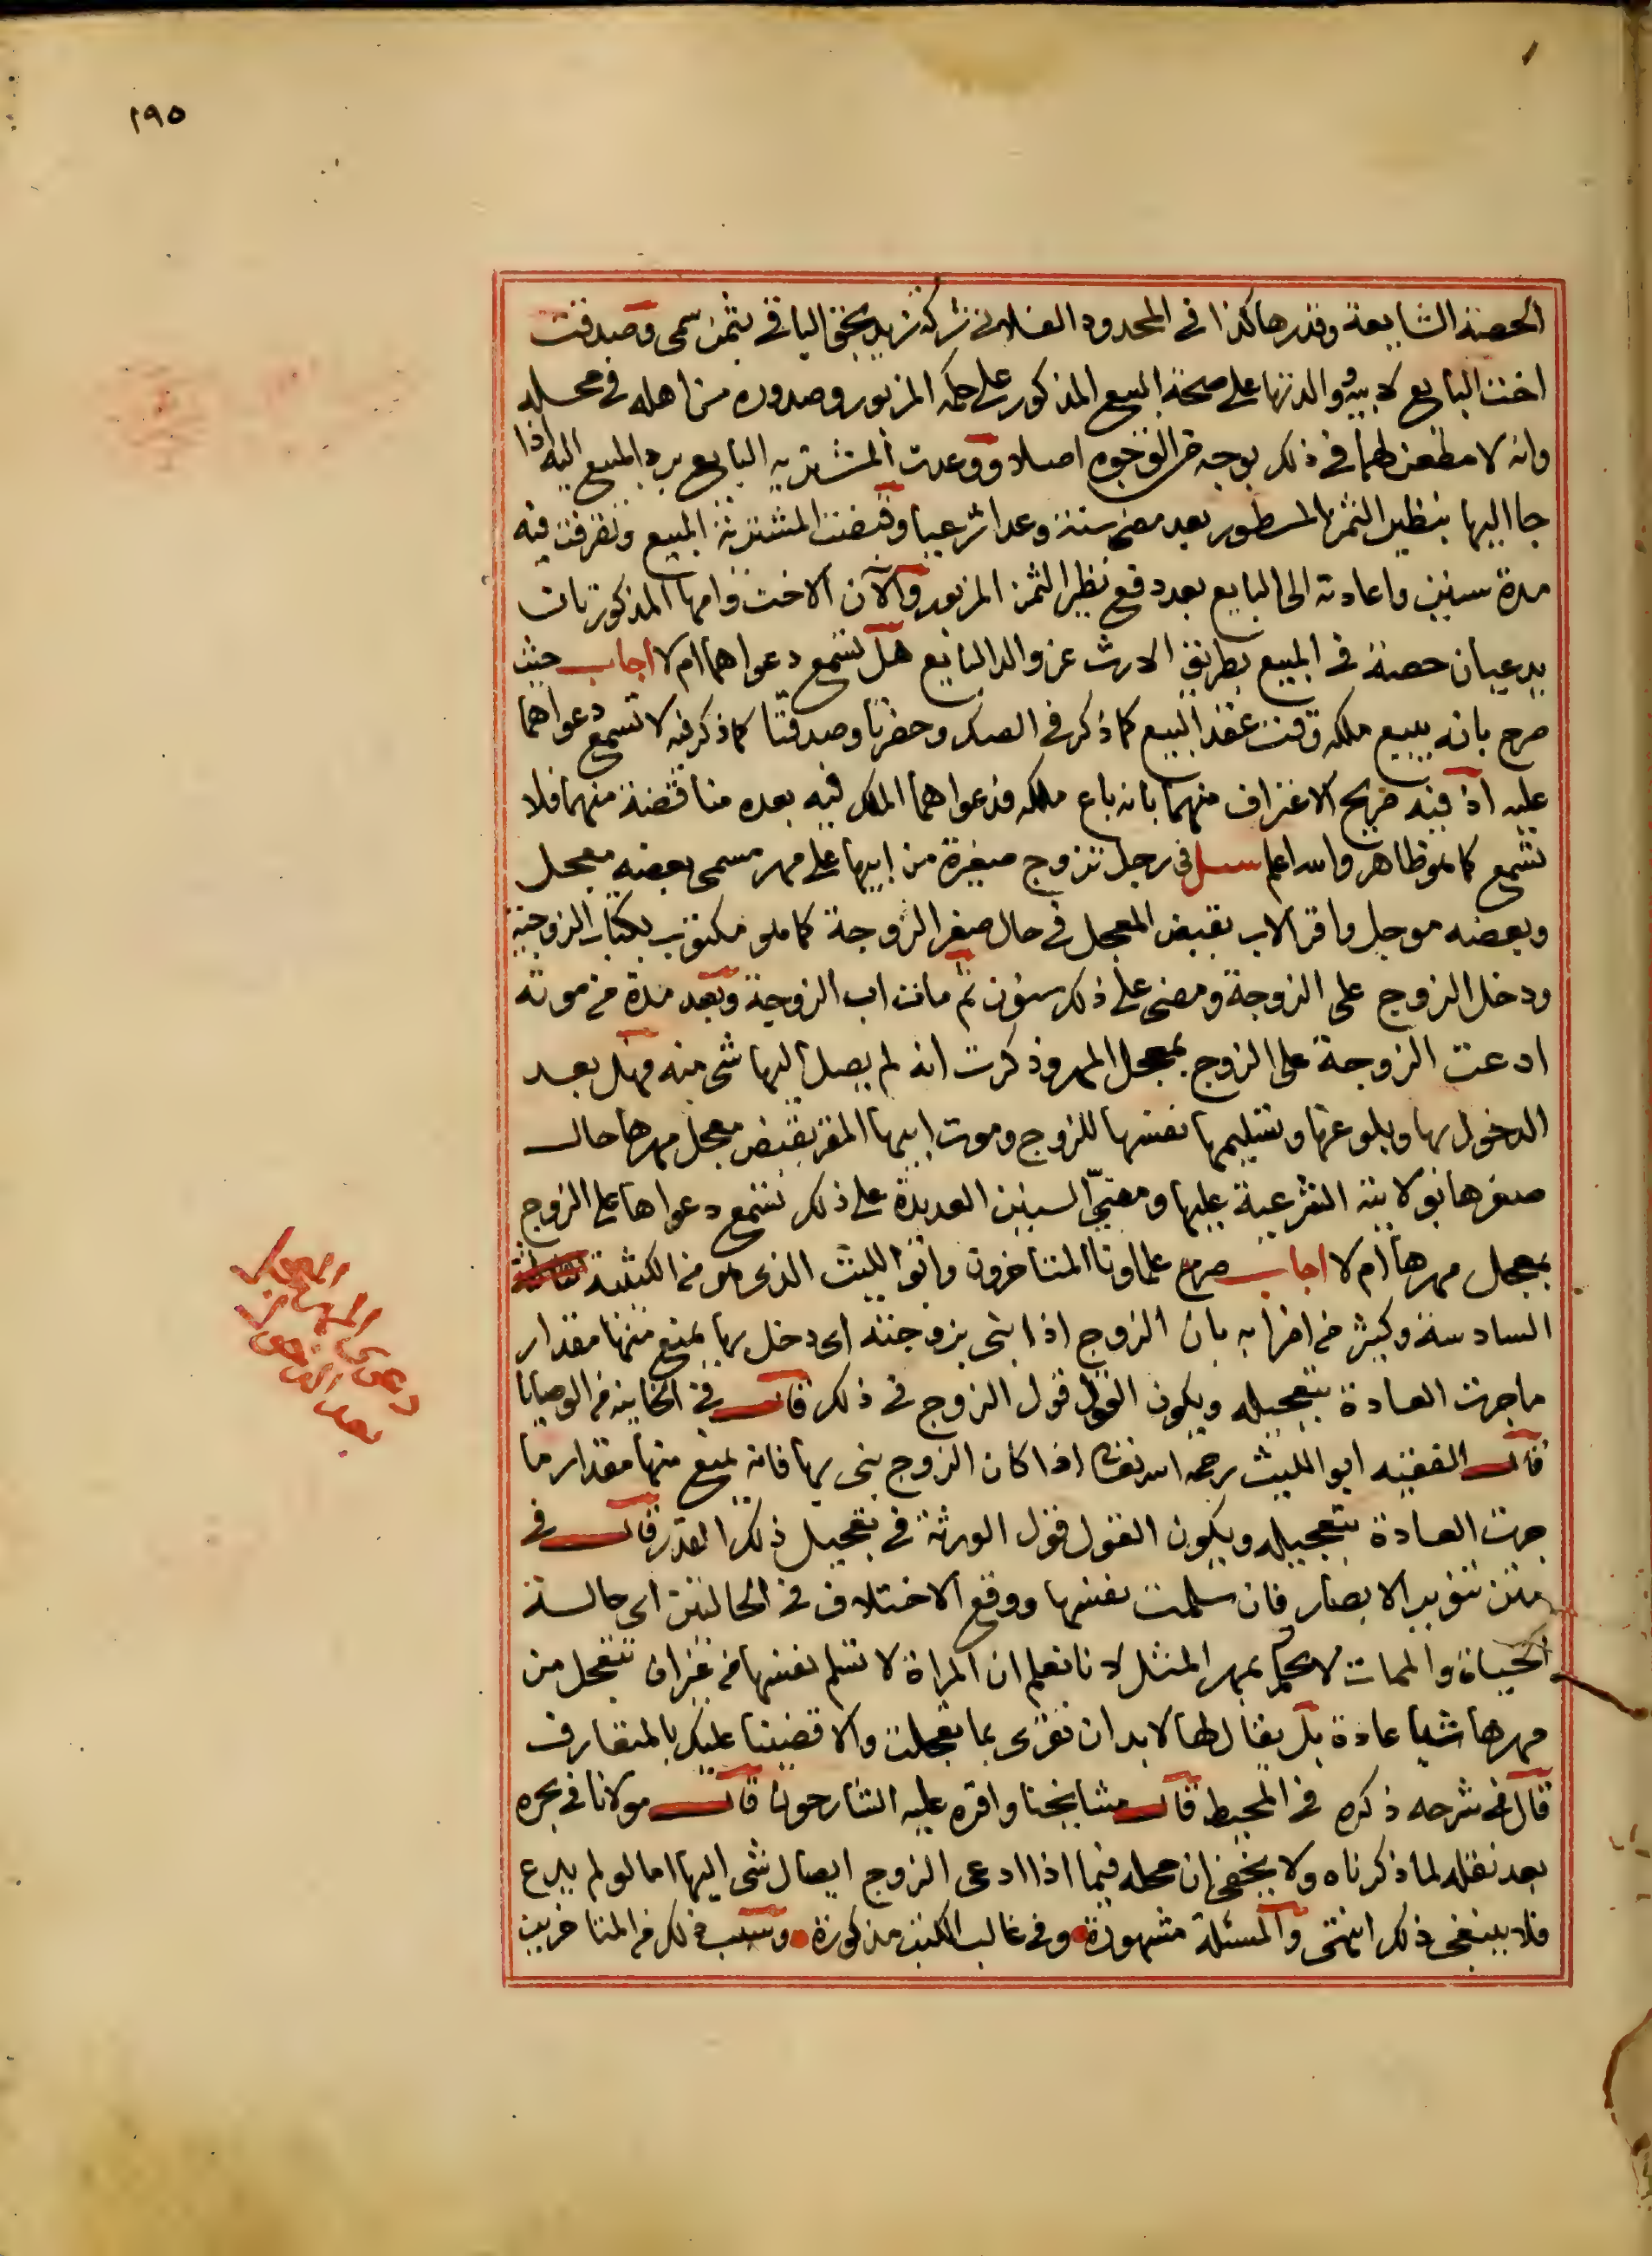 ١٩٥
الحصة الشايعة وقدرها كذا في المحدود الفلاني شركة زيد بحق الباقي بثمن سمى وصدقت
اخت البايع لابيه ووالدتها على صحة المبيع المذكور على حكمه المزبور وصدوره من اهله في محله
وانه لا مطعن لهما في ذلك بوجه من الوجوه اصلا ووعدت المشترية البايع برد المبيع اليه اذا
جا اليها بنظير الثمن المسطور بعد مضي سنة وعدا شرعيا وقبضت المشترية المبيع وتصرفت فيه
مدة سنين واعادته الى البايع بعد دفع نظير الثمن المزبور والآن الاخت وامها المذكورتان
يدعيان حصة في المبيع بطريق الارث عن والد البايع هل تسمع دعواهما ام لا اجاب حيث
صرح بانه يبيع ملكه وقت عقد البيع كما ذكر في الصك وحضرتا وصدقتا كما ذكر فيه لا تسمع دعواهما
عليه اذ فيه صريح الاعتراف منهما بانه باع ملكه فدعواهما الملك فيه بعده مناقضة منهما فلا
تسمع كما هو ظاهر والله اعلم سئل في رجل تزوج صغيرة من ابيها على مهر مسمى بعضه معجل
وبعضه موجل واقر الاب بقبض المعجل في حال صغر الزوجة كما هو مكتوب بكتاب الزوجية
ودخل الزوج على الزوجة ومضى على ذلك سنون ثم مات اب الزوجة وبعد مدة من موته
ادعت الزوجة على الزوج بمعجل المهر وذكرت انه لم يصل اليها شي منه فهل بعد
الدخول بها وبلوغها وتسليمها نفسها للزوج وموت ابيها المقر بقبض معجل مهرها حال
صغرها بولايته الشرعية عليها ومضي السنين العديدة على ذلك تسمع دعواها على الزوج
بمعجل مهرها ام لا اجاب صرح علماونا المتاخرون وابو الليث الذي هو من الكتيبة
السادسة وكثير من اضرابه بان الزوج اذا بنى بزوجته اى دخل بها يمنع منها مقدار
ما جرت العادة بتعجيله ويكون القول قول الزوج في ذلك قال في الخانية من الوصايا
قال الفقيه ابو الليث رحمه الله تعالى اذا كان الزوج بنى بها فانه يمنع منها مقدار ما
جرت العادة بتعجيله ويكون القول قول الورثة في تعجيل ذلك القدر قال في
متن تنوير الابصار فان سلمت نفسها ووقع الاختلاف في الحالتين اى حالة
الحياة والممات لا يحكم بمهر المثل لانا نعلم ان المراة لا تسلم نفسها من غير ان تتعجل من
مهرها شيا عادة بل يقال لها لابد ان تقرى بما تعجلت والا قضينا عليك بالمتعارف
قال في شرحه ذكره في المحيط قال مشايخنا واقره عليه الشارحون قال مولانا في بحره
بعد نقله لما ذكرناه ولا يخفى ان محله فيما اذا ادعى الزوج ايصال شى اليها اما لو لم يدع
فلا ينبغي ذلك انتهى والمسئلة مشهورة وفي غالب الكتب مذكورة وسبب ذلك من المتاخرين
دعوى المهر المعجل
بعد الدخول